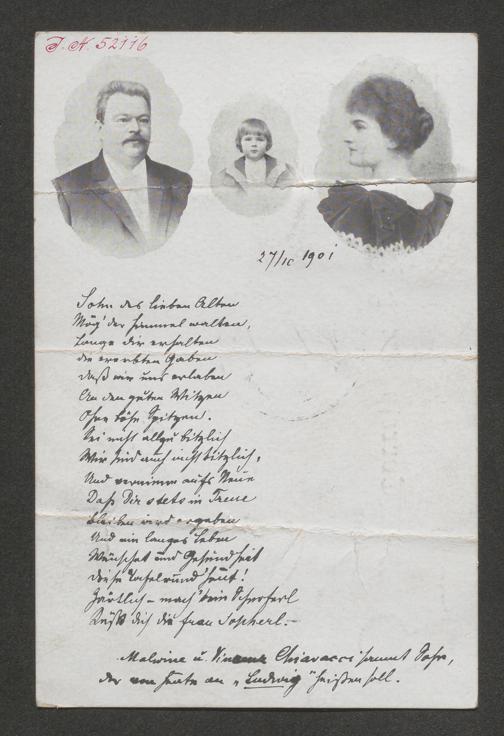 J. N. 52116
27/IX 1901
Sohn des lieben Alten
Mög' der Himmel walten,
Lange dir erhalten
die ererbten Gaben
Daß wir uns erlaben
An den guten Witzen
Ohne böse Spitzen.
Sei nicht allzu kitzlich
Wir sind auch nicht bitzlich,
Und vernimm aufs Neue
Daß Dir stets in Treue
Bleiben wird ergeben
Und ein langes Leben
Wünschet und Gesundheit
Diese Tafelrund heut!
Zärtlich – mach' kein
Küßt dich die Frau Sopherl.–
Malwine u. Vincenz Chiavacci sammt Sohn,
der von heute an „Ludwig" heißen soll.